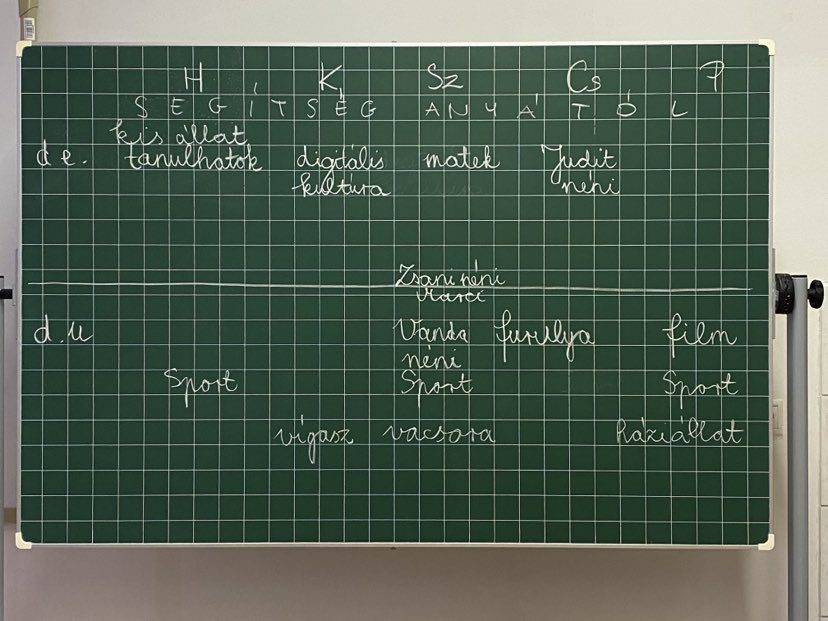 H K Sz Cs P
SEGÍTSÉG ANYÁTÓL
kis állat
de. tanulhatok digitális matek Judit
kultúra néni
Zsani néni
Marci
d.u Vanda furulya film
néni
Sport Sport Sport
vígasz vacsora háziállat